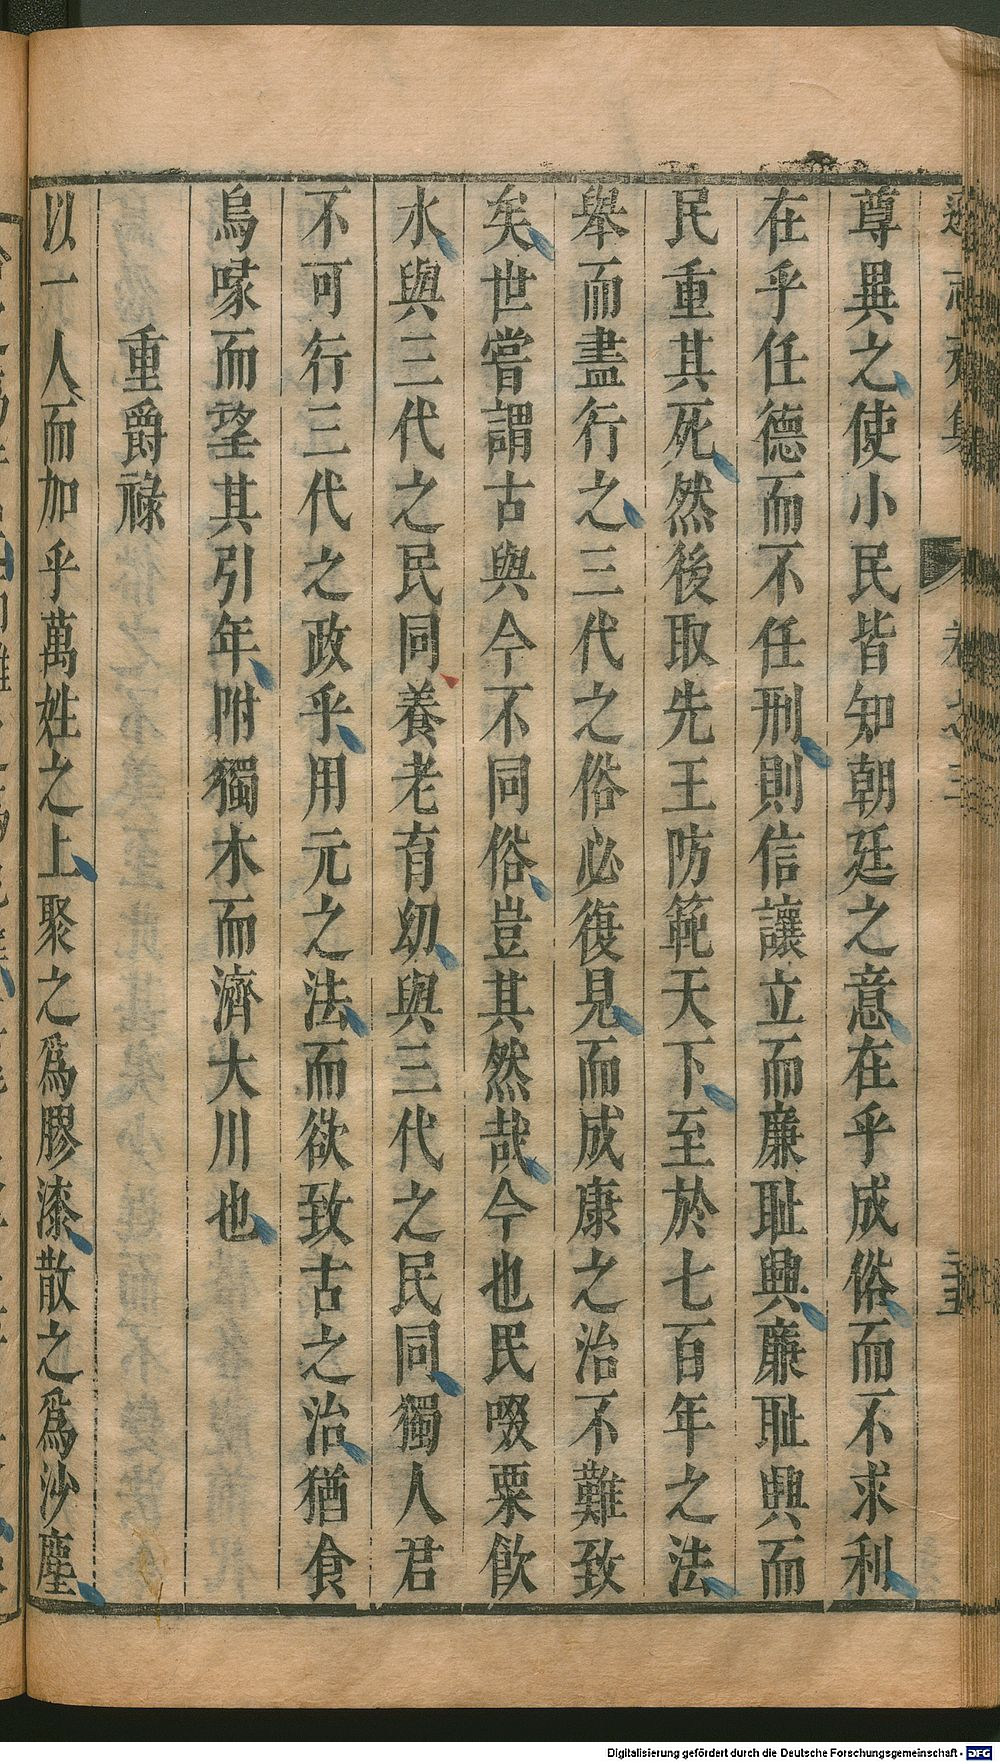 遜志齋集 卷之三 三五
尊異之使小民皆知朝廷之意在乎成俗而不求利
在乎任德而不任刑則信讓立而廉耻興廉耻興而
民重其死然後取先王防範天下至於七百年之法
舉而盡行之三代之俗必復見而成康之治不難致
矣世嘗謂古與今不同俗豈其然哉今也民啜粟飲
水與三代之民同養老育幼與三代之民同獨人君
不可行三代之政乎用元之法而欲致古之治猶食
烏喙而望其引年附獨木而濟大川也
重爵祿
以一人而加乎萬姓之上聚之爲膠漆散之爲沙塵
Digitalisierung gefördert durch die Deutsche Forschungsgemeinschaft - DFG